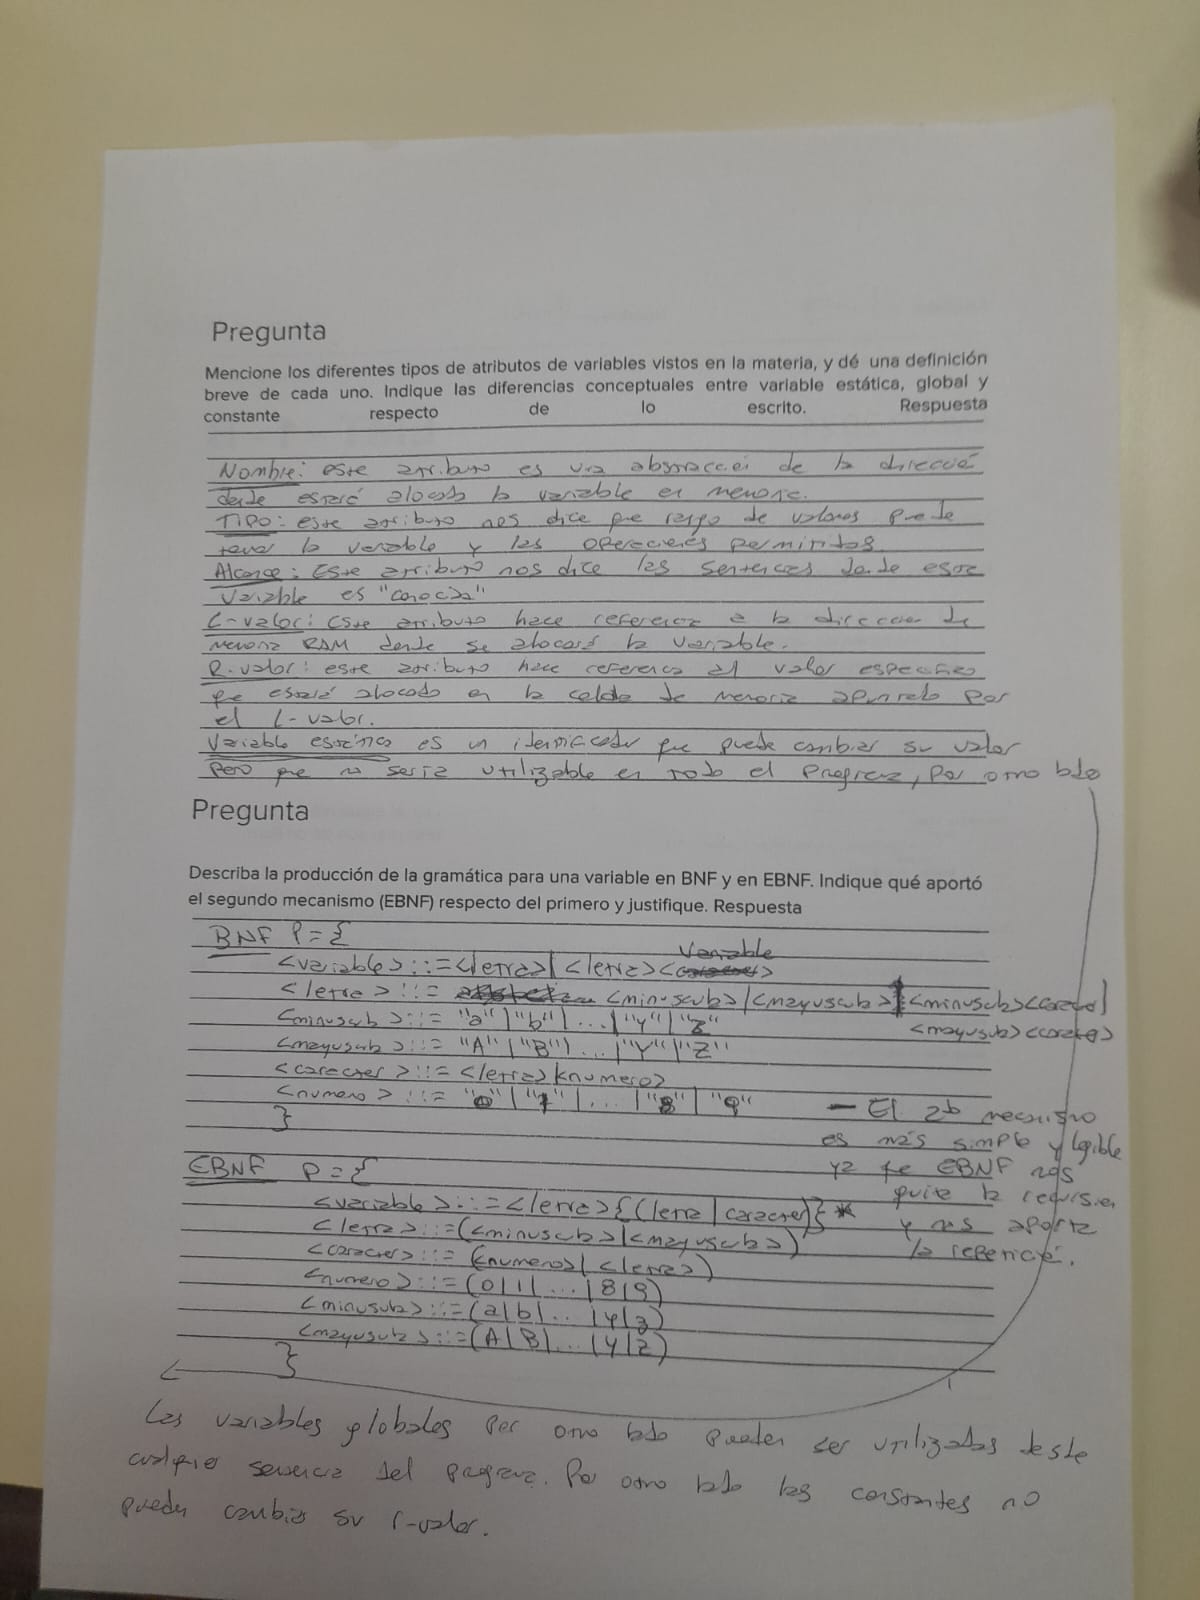 Pregunta
Mencione los diferentes tipos de atributos de variables vistos en la materia, y dé una definición
breve de cada uno. Indique las diferencias conceptuales entre variable estática, global y
constante respecto de lo escrito. Respuesta
Nombre: este atributo es una abstracció de la direcció
donde estará alocada la variable en memoria.
Tipo: este atributo nos dice que rango de valores puede
tener la variable y las operaciones permitidas.
Alcance: Este atributo nos dice las sentencias donde esta
variable es "conocida"
L-valor: Este atributo hace referencia a la direccion de
memoria RAM donde se alocará la variable.
R-valor: este atributo hace referencia al valor especifico
que estará alocado en la celda de memoria apuntado por
el L-valor.
Variable estática es un identificador que puede cambiar su valor
pero que no seria utilizable en todo el programa, por otro lado
Pregunta
Describa la producción de la gramática para una variable en BNF y en EBNF. Indique qué aportó
el segundo mecanismo (EBNF) respecto del primero y justifique. Respuesta
BNF P={
<variable>::=<letra>|<letra><variable>
<letra>::= <minuscula>|<mayuscula>|<minuscula><caracter>|
<mayuscula><caracter>
<minuscula>::= "a"|"b"|...|"y"|"z"
<mayuscula>::= "A"|"B"|...|"Y"|"Z"
<caracter>::=<letra>|<numero>
<numero>::= "0"|"1"|...|"8"|"9"
}
- El 2do mecanismo
es más simple y legible
ya que EBNF nos
quita la recursion
y nos aporta
la repetición.
EBNF P={
<variable>::=<letra>{(letra|caracter)}*
<letra>::=(<minuscula>|<mayuscula>)
<caracter>::=(<numero>|<letra>)
<numero>::=(0|1|...|8|9)
<minuscula>::=(a|b|...|y|z)
<mayuscula>::=(A|B|...|Y|Z)
}
Las variables globales por otro lado pueden ser utilizadas desde
cualquier sentencia del programa. Por otro lado las constantes no
pueden cambiar su r-valor.